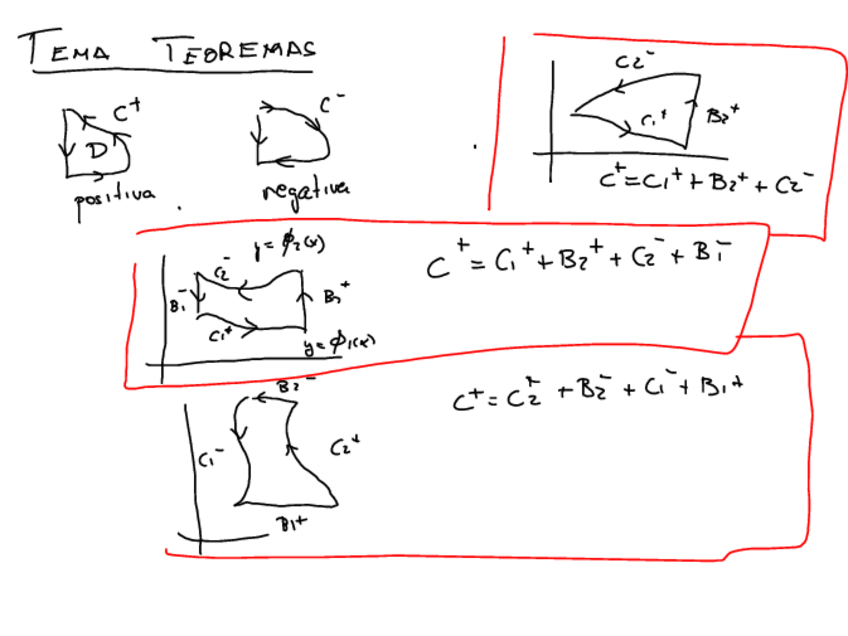 TEMA TEOREMAS
C⁺
D
positiva
C⁻
negativa
C2⁻
C1⁺
B2⁺
C⁺=C1⁺+B2⁺+C2⁻
y=ϕ2(x)
C2⁻
B1⁻
B2⁺
C1⁺
y=ϕ1(x)
C⁺=C1⁺+B2⁺+C2⁻+B1⁻
B2⁻
C1⁻
C2⁺
B1⁺
C⁺=C2⁺+B2⁻+C1⁻+B1⁺